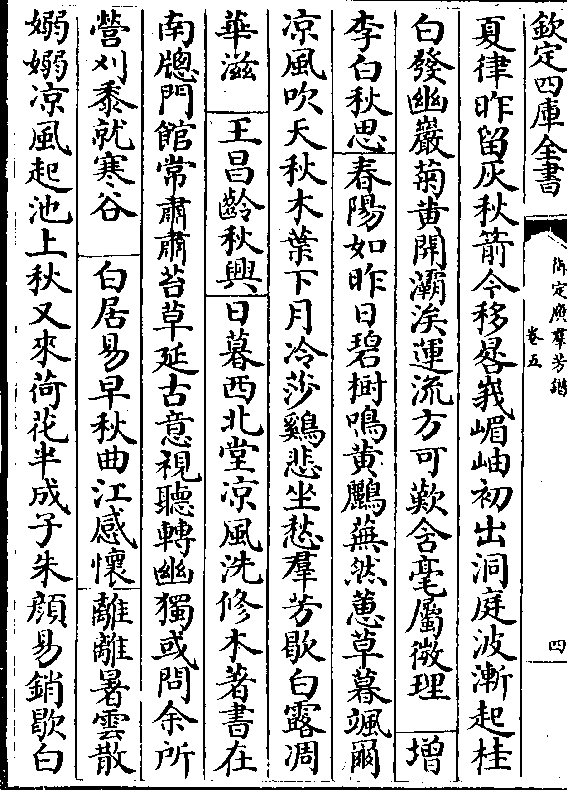 欽定四庫全書
御定佩文齋廣羣芳譜
卷五
四
夏律昨留灰秋箭今移晷峩嵋岫初出洞庭波漸起桂
白發幽巖菊黄開灞涘運流方可歎含毫屬微理 增
李白秋思春陽如昨日碧樹鳴黄鸝蕪然蕙草暮颯爾
凉風吹天秋木葉下月冷莎鷄悲坐愁羣芳歇白露凋
華滋 王昌齡秋興日暮西北堂凉風洗修木著書在
南牕門館常肅肅苔草延古意視聽轉幽獨或問余所
營刈黍就寒谷 白居易早秋曲江感懷離離暑雲散
嫋嫋凉風起池上秋又來荷花半成子朱顔易銷歇白